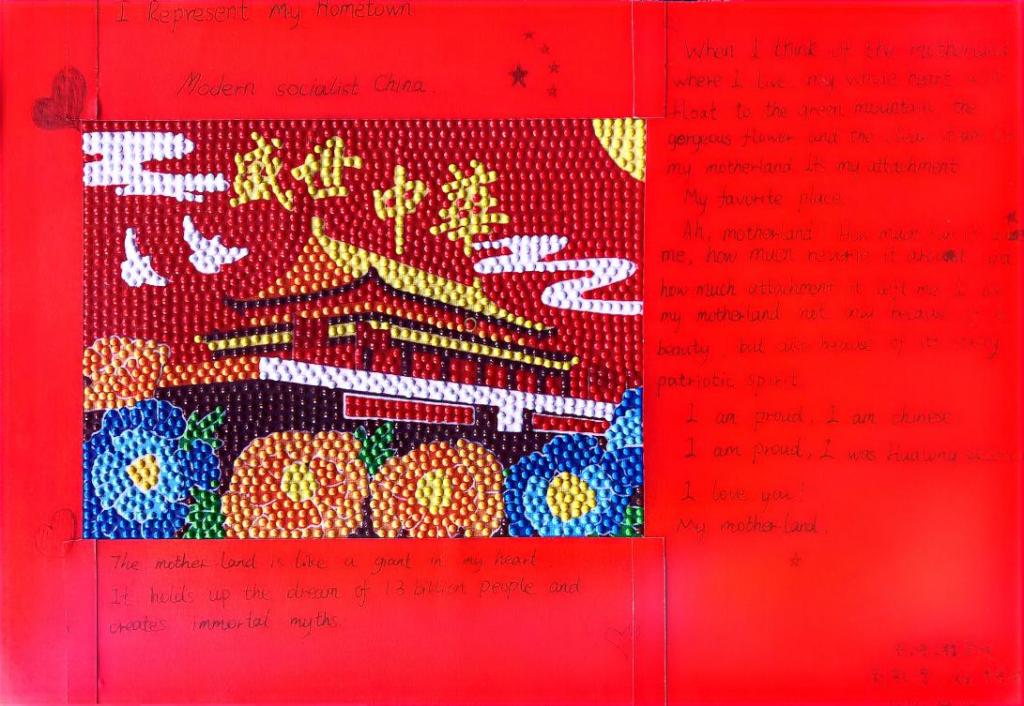 I Represent My Hometown
Modern socialist China.
盛世
中華
When I think of the motherland
where I live my whole heart will
float to the green mountain the
gorgeous flower and the
my motherland Its my attachment
My favorite place
Ah, motherland How much
me, how much reverie it
how much attachment it left me I
my motherland not only because
beauty but also because of its strong
patriotic spirit
I am proud, I am chinese
I am proud, I was Hualong
I love you!
My motherland.
The mother land is like a giant in my heart
It holds up the dream of 13 billion people and
creates immortal myths.